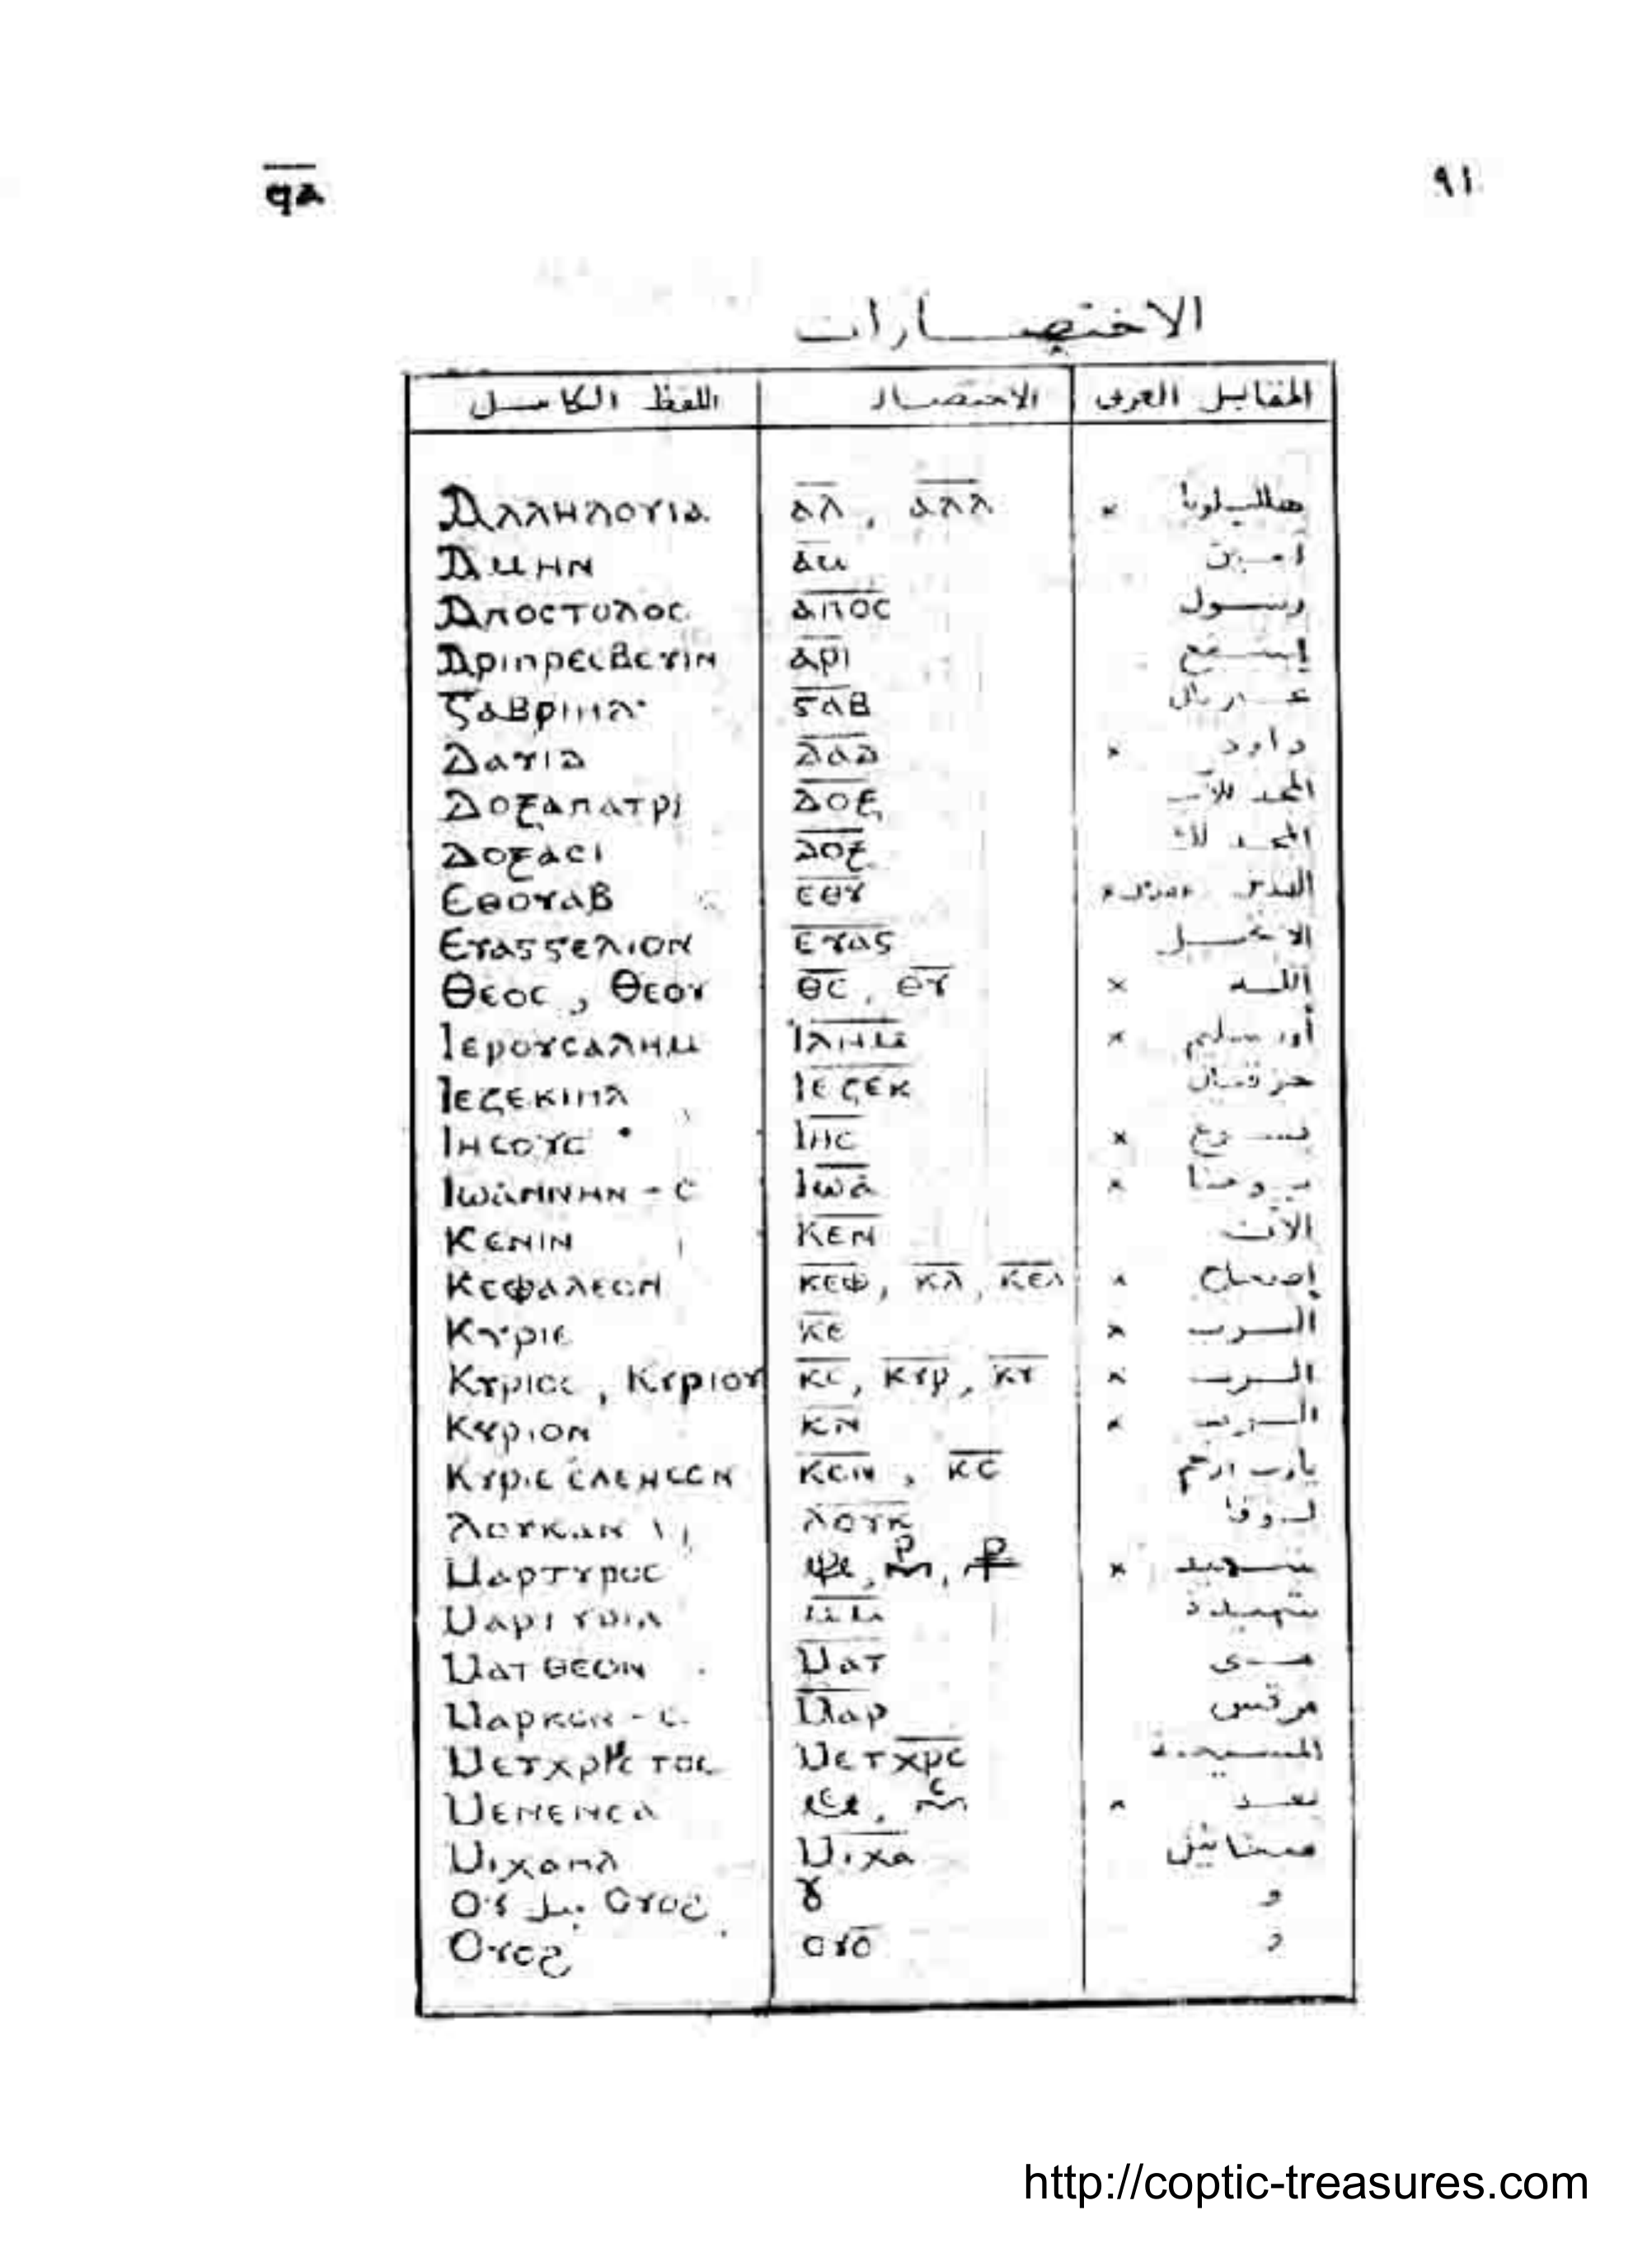 ϥⲁ ٩١
الاختصارات
اللفظ الكامل الاختصار المقابل العربى
Ⲁⲗⲗⲏⲗⲟⲩⲓⲁ ⲁ̅ⲗ̅ , ⲁ̅ⲗ̅ⲗ̅ × هلليلويا
Ⲁⲙⲏⲛ ⲁ̅ⲙ̅ امين
Ⲁⲡⲟⲥⲧⲟⲗⲟⲥ ⲁ̅ⲡ̅ⲟ̅ⲥ̅ رسول
Ⲁⲣⲓⲡⲣⲉⲥⲃⲉⲩⲓⲛ ⲁ̅ⲣ̅ⲓ̅ إشفع
Ⲅⲁⲃⲣⲓⲏⲗ ⲅ̅ⲁ̅ⲃ̅ غبريال
Ⲇⲁⲩⲓⲇ ⲇ̅ⲁ̅ⲇ̅ × داود
Ⲇⲟⲝⲁⲡⲁⲧⲣⲓ ⲇ̅ⲟ̅ⲝ̅ المجد للآب
Ⲇⲟⲝⲁⲥⲓ ⲇ̅ⲟ̅ⲝ̅ المجد لك
Ⲉⲑⲟⲩⲁⲃ ⲉ̅ⲑ̅ⲩ̅ ×
Ⲉⲩⲁⲅⲅⲉⲗⲓⲟⲛ ⲉ̅ⲩ̅ⲁ̅ⲅ̅ الانجيل
Ⲑⲉⲟⲥ , Ⲑⲉⲟⲩ ⲑ̅ⲥ̅ , ⲑ̅ⲩ̅ × الله
Ⲓⲉⲣⲟⲩⲥⲁⲗⲏⲙ ⲓ̅ⲗ̅ⲏ̅ⲙ̅ × أورشليم
Ⲓⲉⲍⲉⲕⲓⲏⲗ ⲓ̅ⲉ̅ⲍ̅ⲉ̅ⲕ̅ حزقيال
Ⲓⲏⲥⲟⲩⲥ ⲓ̅ⲏ̅ⲥ̅ × يسوع
Ⲓⲱⲁⲛⲛⲏⲛ - ⲥ ⲓ̅ⲱ̅ⲁ̅ × يوحنا
Ⲕⲉⲛⲓⲛ ⲕ̅ⲉ̅ⲛ̅ الآن
Ⲕⲉⲫⲁⲗⲉⲟⲛ ⲕ̅ⲉ̅ⲫ̅ , ⲕ̅ⲗ̅ , ⲕ̅ⲉ̅ⲗ̅ × إصحاح
Ⲕⲩⲣⲓⲉ ⲕ̅ⲉ̅ × الرب
Ⲕⲩⲣⲓⲟⲥ , Ⲕⲩⲣⲓⲟⲩ ⲕ̅ⲥ̅ , ⲕ̅ⲩ̅ⲣ̅ , ⲕ̅ⲩ̅ × الرب
Ⲕⲩⲣⲓⲟⲛ ⲕ̅ⲛ̅ × الرب
Ⲕⲩⲣⲓⲉ ⲉⲗⲉⲏⲥⲟⲛ ⲕ̅ⲉ̅ⲛ̅ , ⲕ̅ⲉ̅ يارب ارحم
Ⲗⲟⲩⲕⲁⲛ ⲗ̅ⲟ̅ⲩ̅ⲕ̅ لوقا
Ⲙⲁⲣⲧⲩⲣⲟⲥ × شهيد
Ⲙⲁⲣⲧⲩⲣⲓⲁ شهيدة
Ⲙⲁⲧⲑⲉⲟⲛ ⲙ̅ⲁ̅ⲧ̅ متى
Ⲙⲁⲣⲕⲟⲛ - ⲥ ⲙ̅ⲁ̅ⲣ̅ مرقس
Ⲙⲉⲧⲭⲣⲏⲥⲧⲟⲥ ⲙⲉⲧⲭ̅ⲣ̅ⲥ̅ المسيحية
Ⲙⲉⲛⲉⲛⲥⲁ × بعد
Ⲙⲓⲭⲁⲏⲗ ⲙ̅ⲓ̅ⲭ̅ⲁ̅ ميخائيل
Ⲟⲩ بدل Ⲟⲩⲟϩ ȣ و
Ⲟⲩⲟϩ ⲟⲩⲟ̅ و
http://coptic-treasures.com